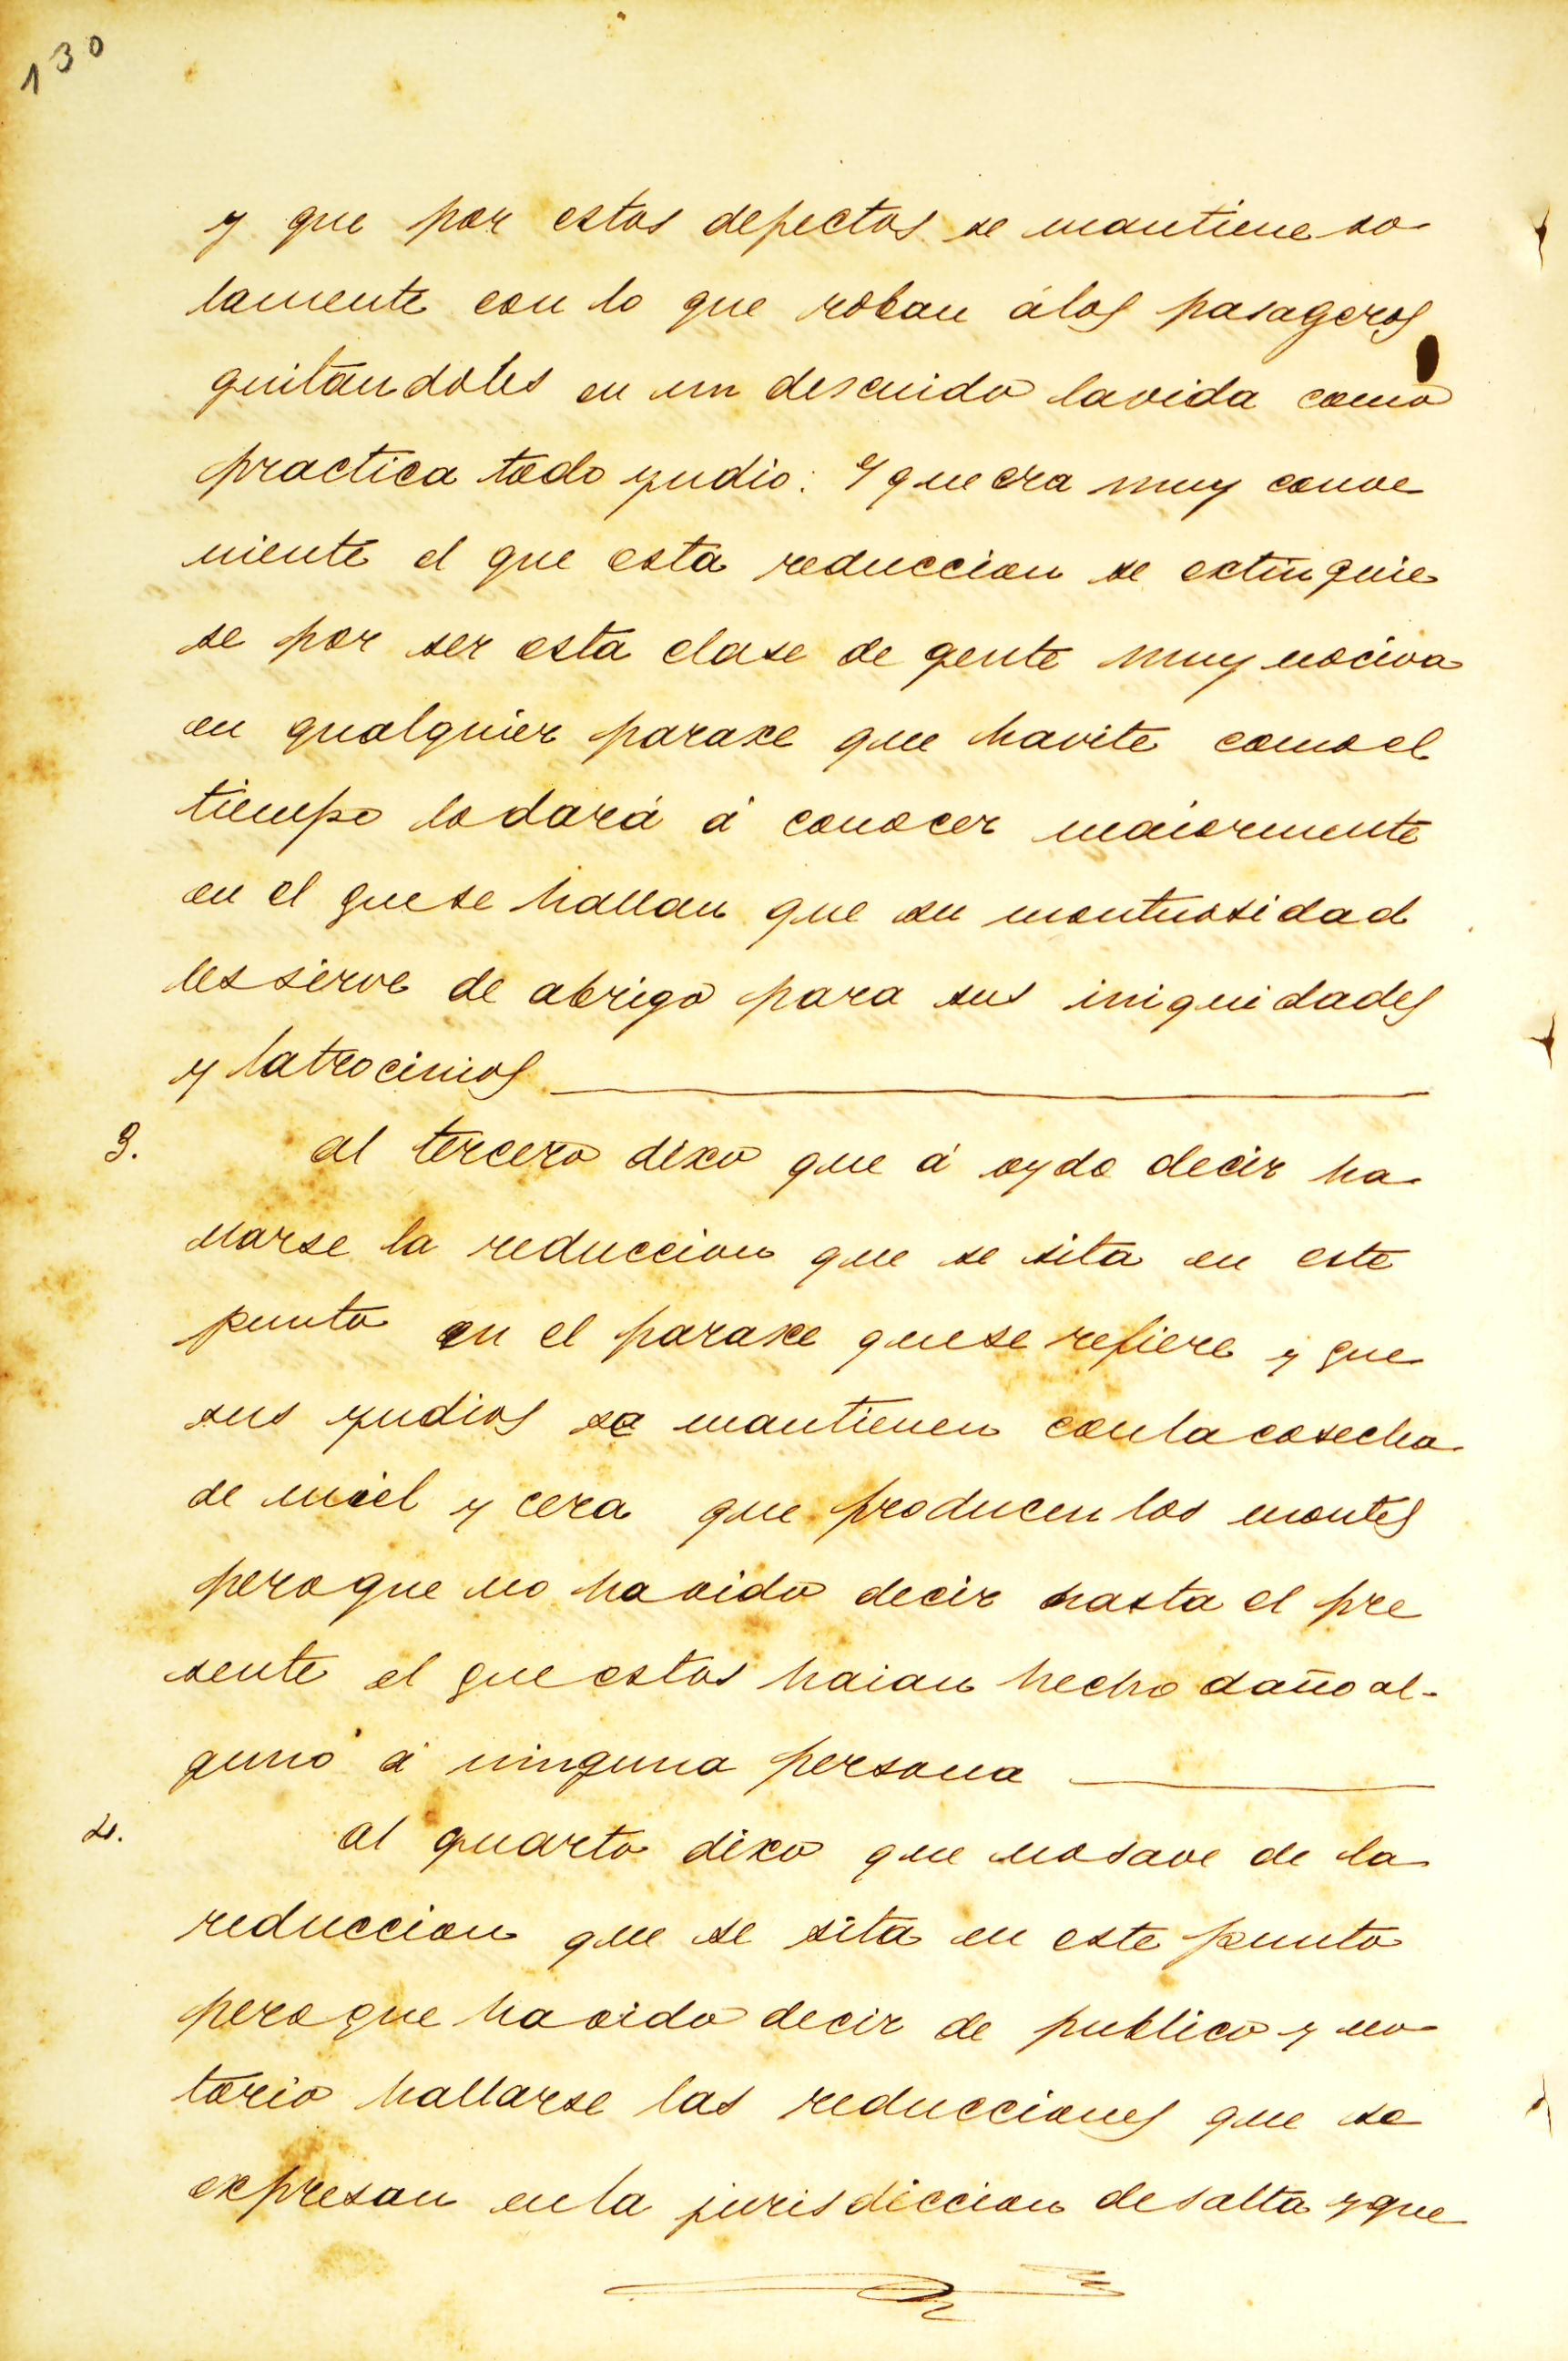 130
y que por estos defectos se mantiene so-
lamente con lo que roban álos pasageros
quitandoles en un descuido lavida como
practica todo yudio: Y que era muy conve
niente el que esta reduccion se extinguie
se por ser esta clase de gente muy nociva
en qualquier paraxe que havite como el
tiempo lo dará á conocer maiormente
en el que se hallan que su montuosidad
les sirve de abrigo para sus iniquidades
y latrocinios
3. al tercero dixo que á oydo decir ha-
llarse la reduccion que se sita en este
punto en el paraxe quese refiere y que
sus yudios se mantienen con la cosecha
de miel y cera que producen los montes
pero que no ha oido decir hasta el pre
sente el que estos haian hecho daño al-
guno á ninguna persona
4. al quarto dixo que no save de la
reduccion que se sita en este punto
pero que ha oido decir de publico y no-
torio hallarse las reducciones que se
expresan en la jurisdiccion de salta y que